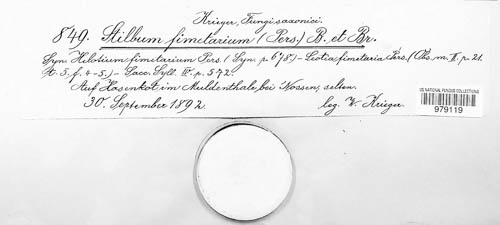 Krieger, Fungi saxonici.
849. Stilbum fimetarium (Pers.) B. et Br.
Syn. Helotium fimetarium Pers. (Syn. p. 678) – Leotia fimetaria Pers. (Obs. m. II. p. 21.
t. 5. f. 4-5.) – Sacc. Syll. IV. p. 572.
Auf Hasenkot im Muldenthale bei Nossen, selten.
30. September 1892. leg. W. Krieger.
US NATIONAL FUNGUS COLLECTIONS
979119